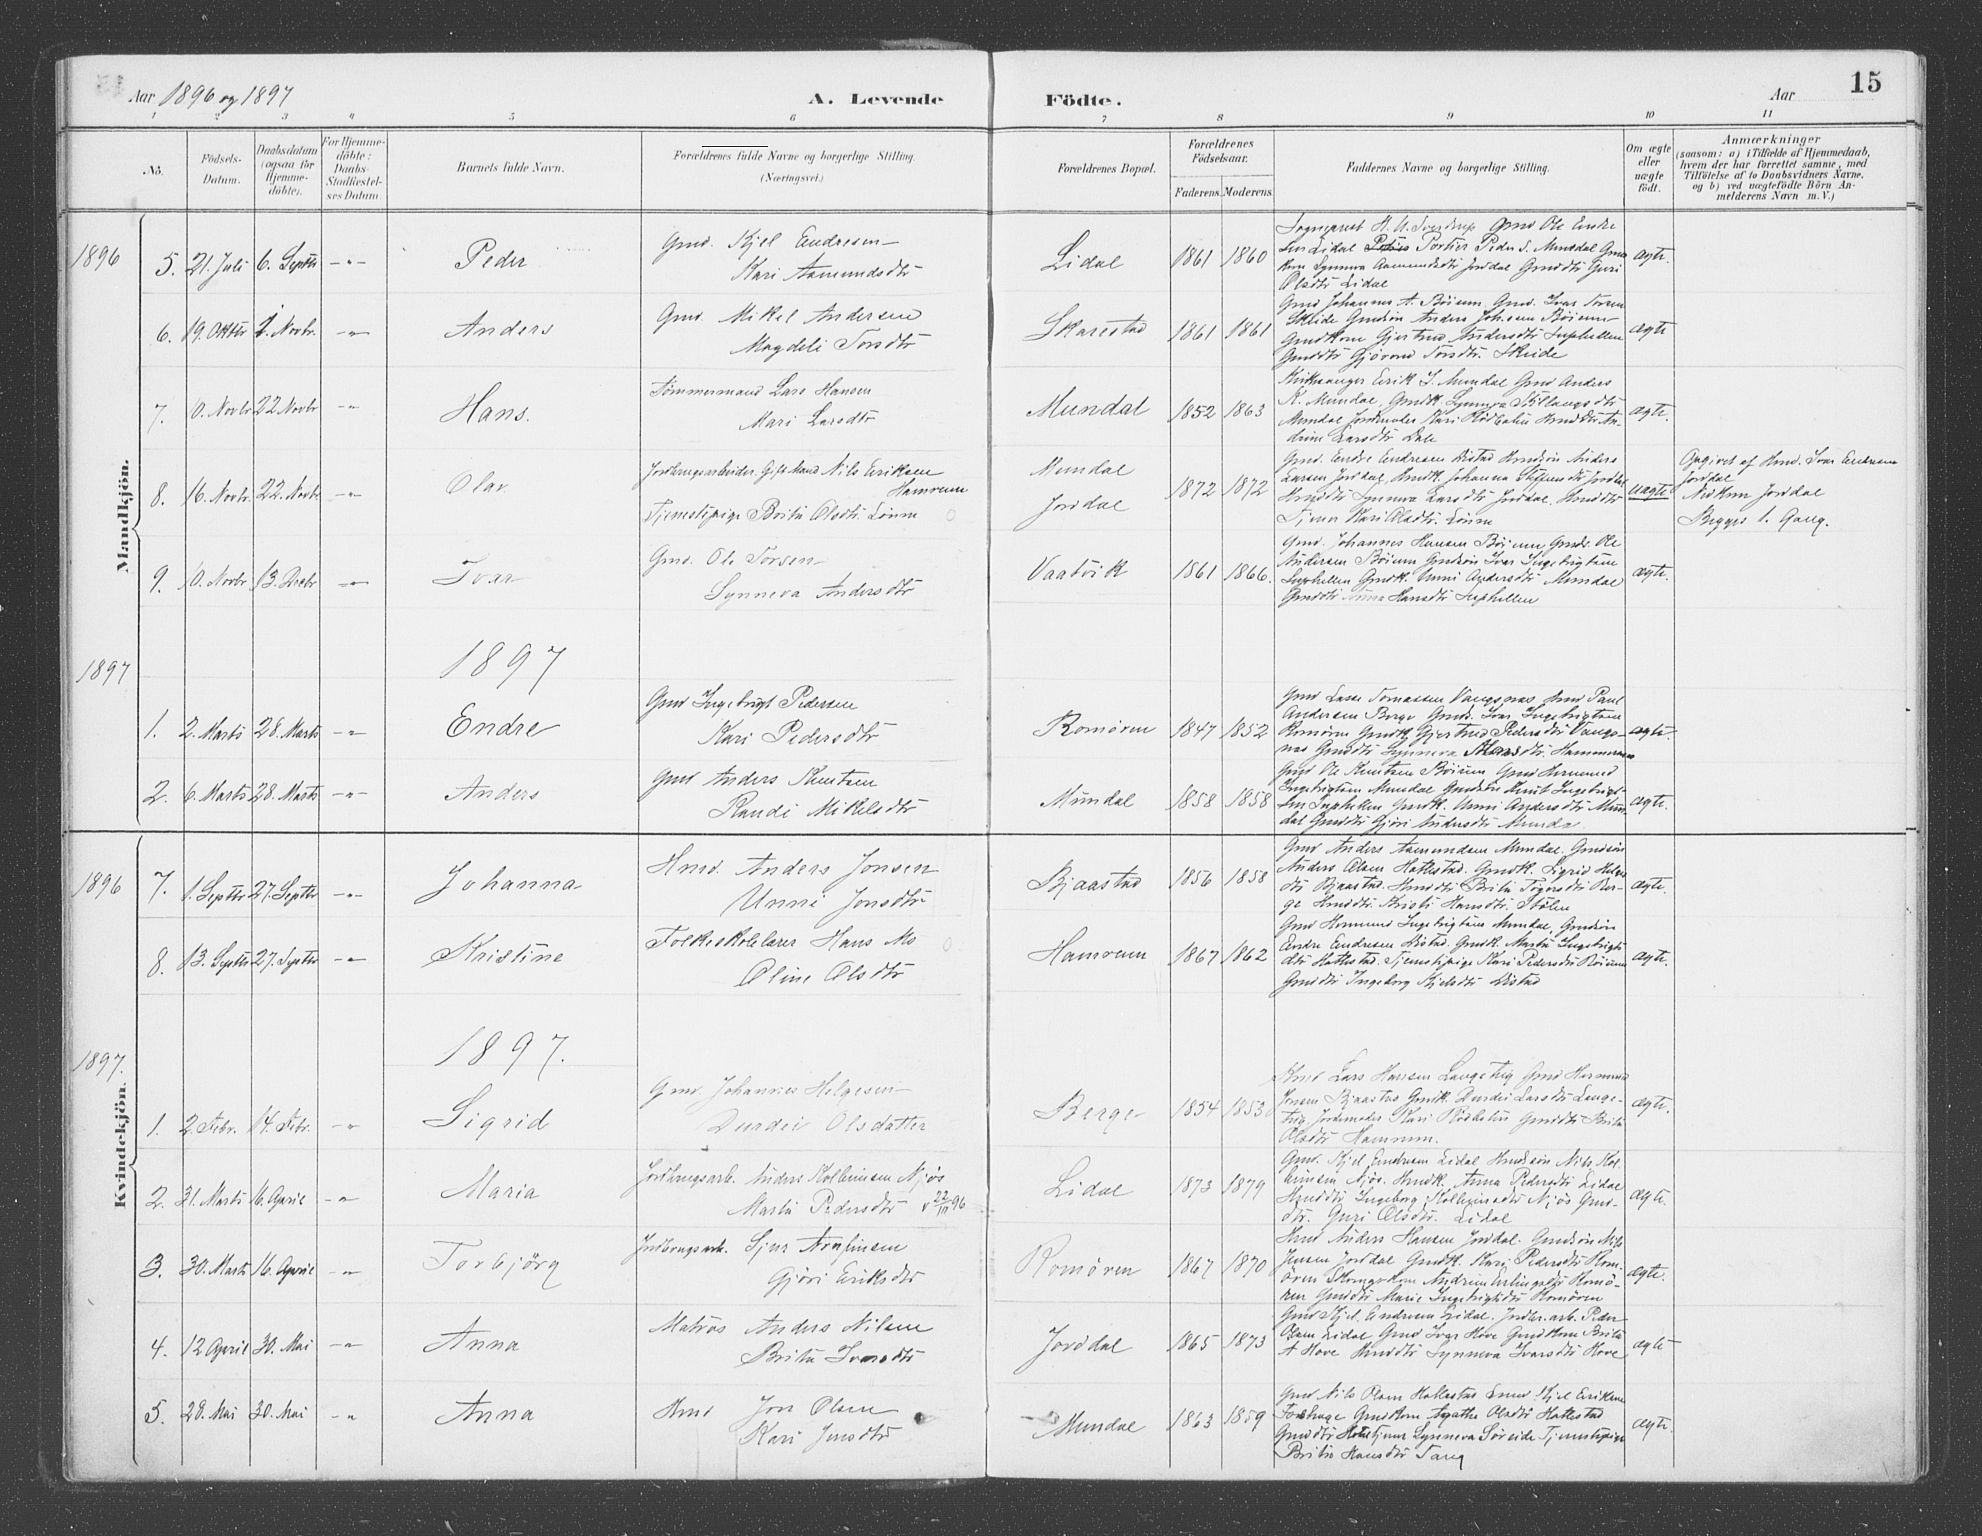 15
Aar 1896 og 1897
A. Levende
Födte.
Aar
1 2 3 4 5 6 7 8 9 10 11
No.
Födsels-
Datum.
Daabsdatum
(ogsaa for
Hjemme-
döbte).
For Hjemme-
döbte:
Daabs-
Stadfæstel-
ses Datum.
Barnets fulde Navn.
Forældrenes fulde Navne og borgerlige Stilling.
(Næringsvei.)
Forældrenes Bopæl.
Forældrenes
Födselsaar.
Faderens. Moderens.
Faddernes Navne og borgerlige Stilling.
Om ægte
eller
uægte
födt.
Anmærkninger
(saasom: a) i Tilfælde af Hjemmedaab,
hvem der har forrettet samme, med
Tilföielse af to Daabsvidners Navne,
og b) ved uægtefödte Börn An-
melderens Navn m. V.)
Mandkjön.
1896
5. 21. Juli 6. Septbr -"- Peder
Gmd. Kjel Endresen
Kari Aamundsdtr
Lidal 1861 1860
Sogneprest H. U. Sverdrup Gmd Ole Endre
sen Lidal Portier Peder S. Mundal Gmd
kone Synneva Aamundsdtr Jordal Gmddtr Guri
Olsdtr Lidal
ægte.
6. 19. Oktbr 1. Novbr. -"- Anders
Gmd. Mikel Andersen
Magdeli Torsdtr
Skarestad 1861 1861
Gmd Johannes A. Böium, Gmd. Ivar Torsen
Skeide Gmdsön Anders Johnsen Böium
Gmdkone Gjertrud Andersdtr Suphellen
Gmddtr Gjörond Torsdtr. Skeide
ægte
7. 10. Novbr 22 Novbr -"- Hans.
Tömmermand Lars Hansen
Mari Larsdtr
Mundal 1852 1863
Kirkesanger Eirik J. Mundal Gmd Anders
K. Mundal, Gmdk Synneva
Mundal Jordmoder Kari Rödbotn Hmddtr An-
drine Larsdtr Dale
ægte.
8. 16. Novbr. 22. Novbr. -"- Olav
Jordbrugsarbeider. Gift Mand Nils Eiriksen
Hamrum
Tjenestepige Brita Olsdtr. Lönne
Mundal
Jordal
1872 1872
Gmd. Endre Endresen Distad Hmdsön Anders
Larsen Jordal, Hmdk. Johanna Steffensdtr Jordal
Hmddtr Synneva Larsdtr Jordal, Hmddtr
Tjener Kari Olsdtr. Lönne
uægte
Opgivet af Hmd. Ivar Endresen
Jordal
Jordal
Begges 1. Gang.
9. 10. Novbr. 13. Decbr -"- Ivar
Gmd. Ole Torsen
Synneva Andersdtr
Vaatvik 1861 1866.
Gmd. Johannes Hansen Böium Gmds. Ole
Andersen Böium Gmdsön Ivar Ingebrigtsen
Suphellen Gmdk. Unni Andersdtr Mundal
Gmddtr Anna Hansdtr Suphellen
ægte.
1897
1897
1. 2. Marts 28. Marts -"- Endre
Gmd Ingebrigt Pedersen
Kari Pedersdtr
Romören 1847 1852
Gmd Lasse Tomassen Vangsnes Hmd Paul
Andersen Berge Gmds. Ivar Ingebrigtsen
Romören Gmdk Gjertrud Pedersdtr Vangs-
nes Gmddtr Synneva Hansdtr. Hammeren
ægte.
2. 6. Marts 28. Marts -"- Anders
Gmd Anders Knutsen
Randi Mikelsdtr
Mundal 1858 1858
Gmd Ole Knutsen Böium Gmd Hermund
Ingebrigtsen Mundal Gmdsön Knut Ingebrigt-
sen Suphellen Gmdk. Unni Andersdtr Mun-
dal Gmddtr Gjöri Andersdtr Mundal
ægte.
Kvindekjön.
1896
7. 1. Septbr 27. Septbr -"- Johanna
Hmd. Anders Jonsen
Unni Jonsdtr
Bjaastad 1856 1858
Gmd Anders Aamundsen Mundal. Gmdsön
Anders Olsen Hatlestad. Gmdk. Sigrid Helges
dtr Bjaastad. Hmddtr Brita Togersdtr Ber-
ge Hmddtr Kristi Hansdtr. Stölen
ægte.
8. 13. Septbr 27. Septbr -"- Kristine
Folkeskolelærer Hans Mo
Oline Olsdtr
Hamrum 1867 1862
Gmd Hermund Ingebrigtsen Mundal, Gmdsön
Endre Endresen Distad. Gmdk. Marta Ingebrigts
dtr Hatlestad. Tjenestepige Kari Pedersdtr Röium
Gmddtr Ingeborg Kjelsdtr Distad
ægte.
1897.
1897.
1. 2. Febr. 14. Febr. -"- Sigrid
Gmd. Johannes Helgesen
Durdei Olsdatter
Berge 1854 1853
Hmd Lars Hansen Langeteig Gmd Hermund
Jonsen Bjaastad Gmdk. Durdei Larsdtr Lange-
teig Jordmoder Kari Rödbotn Gmddtr Brita
Olsdtr Hamrum.
ægte.
2. 31. Marts 16. April -"- Maria
Jordbrugsarb. Anders Kolbeinsen Njös
Marta Pedersdtr v 22/11 96
Lidal 1873 1879
Gmd. Kjel Endresen Lidal Hmdsön Nils Kol-
beinsen Njös. Hmdk. Anna Pedersdtr Lidal
Hmddtr Ingeborg Kolbeinsdtr Njös Gmd-
dtr. Guri Olsdtr. Lidal
ægte.
3. 30. Marts 16. April -"- Torbjörg
Jordbrugsarb. Sjur Arnfinsen
Gjöri Eriksdtr
Romören 1867 1870
Hmd Anders Hansen Jordal. Gmdsön Nils
Jensen Jordal Gmdk. Kari Pedersdtr Rom-
ören Andrine Erlingsdtr Romö-
ren Gmddtr Marie Ingebrigtsdtr Romören
ægte.
4. 12 April 30. Mai -"- Anna
Matros Anders Nilsen
Brita Ivarsdtr
Jordal 1865 1873
Gmd Kjel. Endresen Lidal. Jordbr.arb. Peder
Olsen Lidal Gmd Ivar Hove Gmdkone Brita
A Hove Hmddtr Synneva Ivarsdtr Hove
ægte
5. 28. Mai 30. Mai -"- Anna
Hmd Jon Olsen
Kari Jensdtr
Mundal 1863 1859
Gmd Nils Olsen Hatlestad Kjel Eiriksen
Gmdkone Agathe Olsdtr Hatlestad
Gmddtr Synneva Söreide Tjenestepige
Brita Hansdtr Tang
ægte.